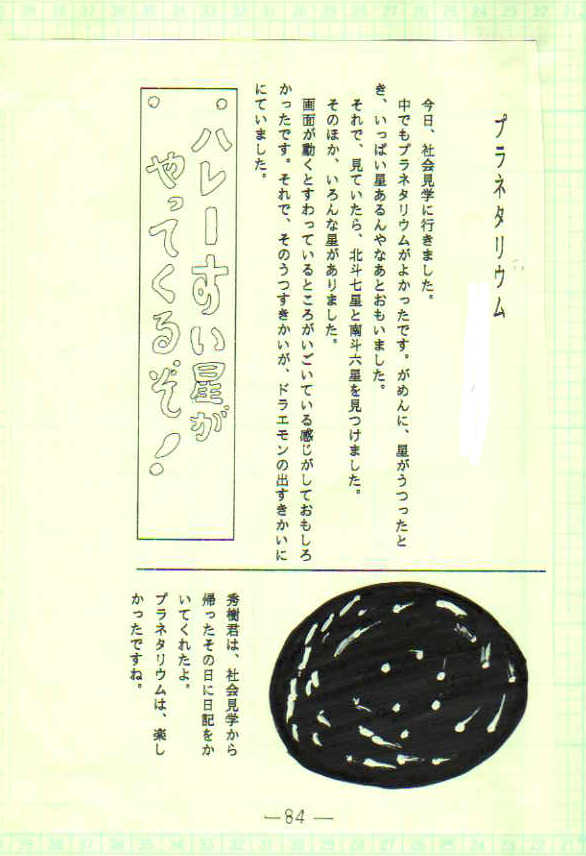 プラネタリウム
今日、社会見学に行きました。
中でもプラネタリウムがよかったです。がめんに、星がうつったと
き、いっぱい星あるんやなあとおもいました。
それで、見ていたら、北斗七星と南斗六星を見つけました。
そのほか、いろんな星がありました。
画面が動くとすわっているところがいごいている感じがしておもしろ
かったです。それで、そのうつすきかいが、ドラエモンの出すきかいに
にていました。
ハレーすい星が
やってくるぞ!
秀樹君は、社会見学から
帰ったその日に日記をか
いてくれたよ。
プラネタリウムは、楽し
かったですね。
—84—